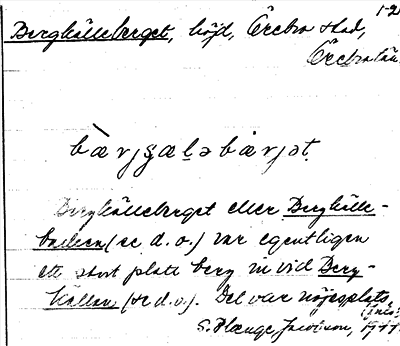 Bergkälleberget, höjd, Örebro stad,
Örebro län.
bær̀jçælə bærjət.
Bergkälleberget eller Bergkälle-
backen (se d. o.) var egentligen
ett stort platt berg in vid Berg-
källan (se d. o.). Det var nöjesplats
S. Jacobson,